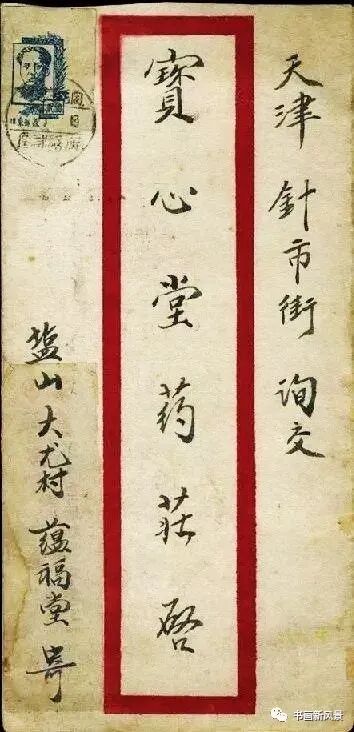 天津 針市街 询交
寳心堂药莊啓
盐山大尤村 蕴福堂 寄
书画新风景